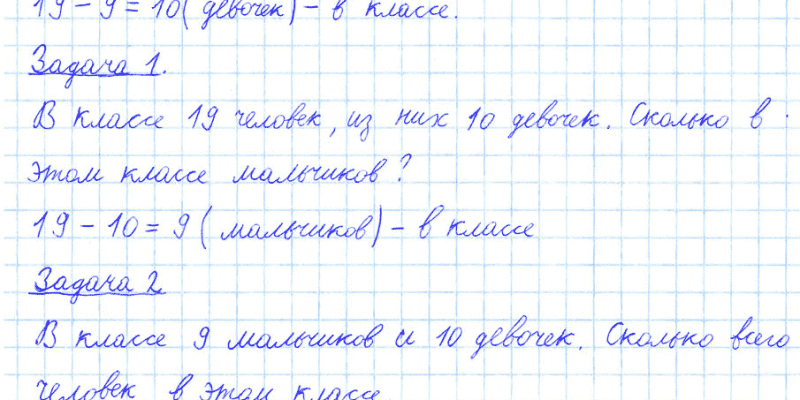 19 - 9 = 10 (девочек) - в классе.
Задача 1.
В классе 19 человек, из них 10 девочек. Сколько в
этом классе мальчиков?
19 - 10 = 9 (мальчиков) - в классе
Задача 2
В классе 9 мальчиков и 10 девочек. Сколько всего
человек в этом классе